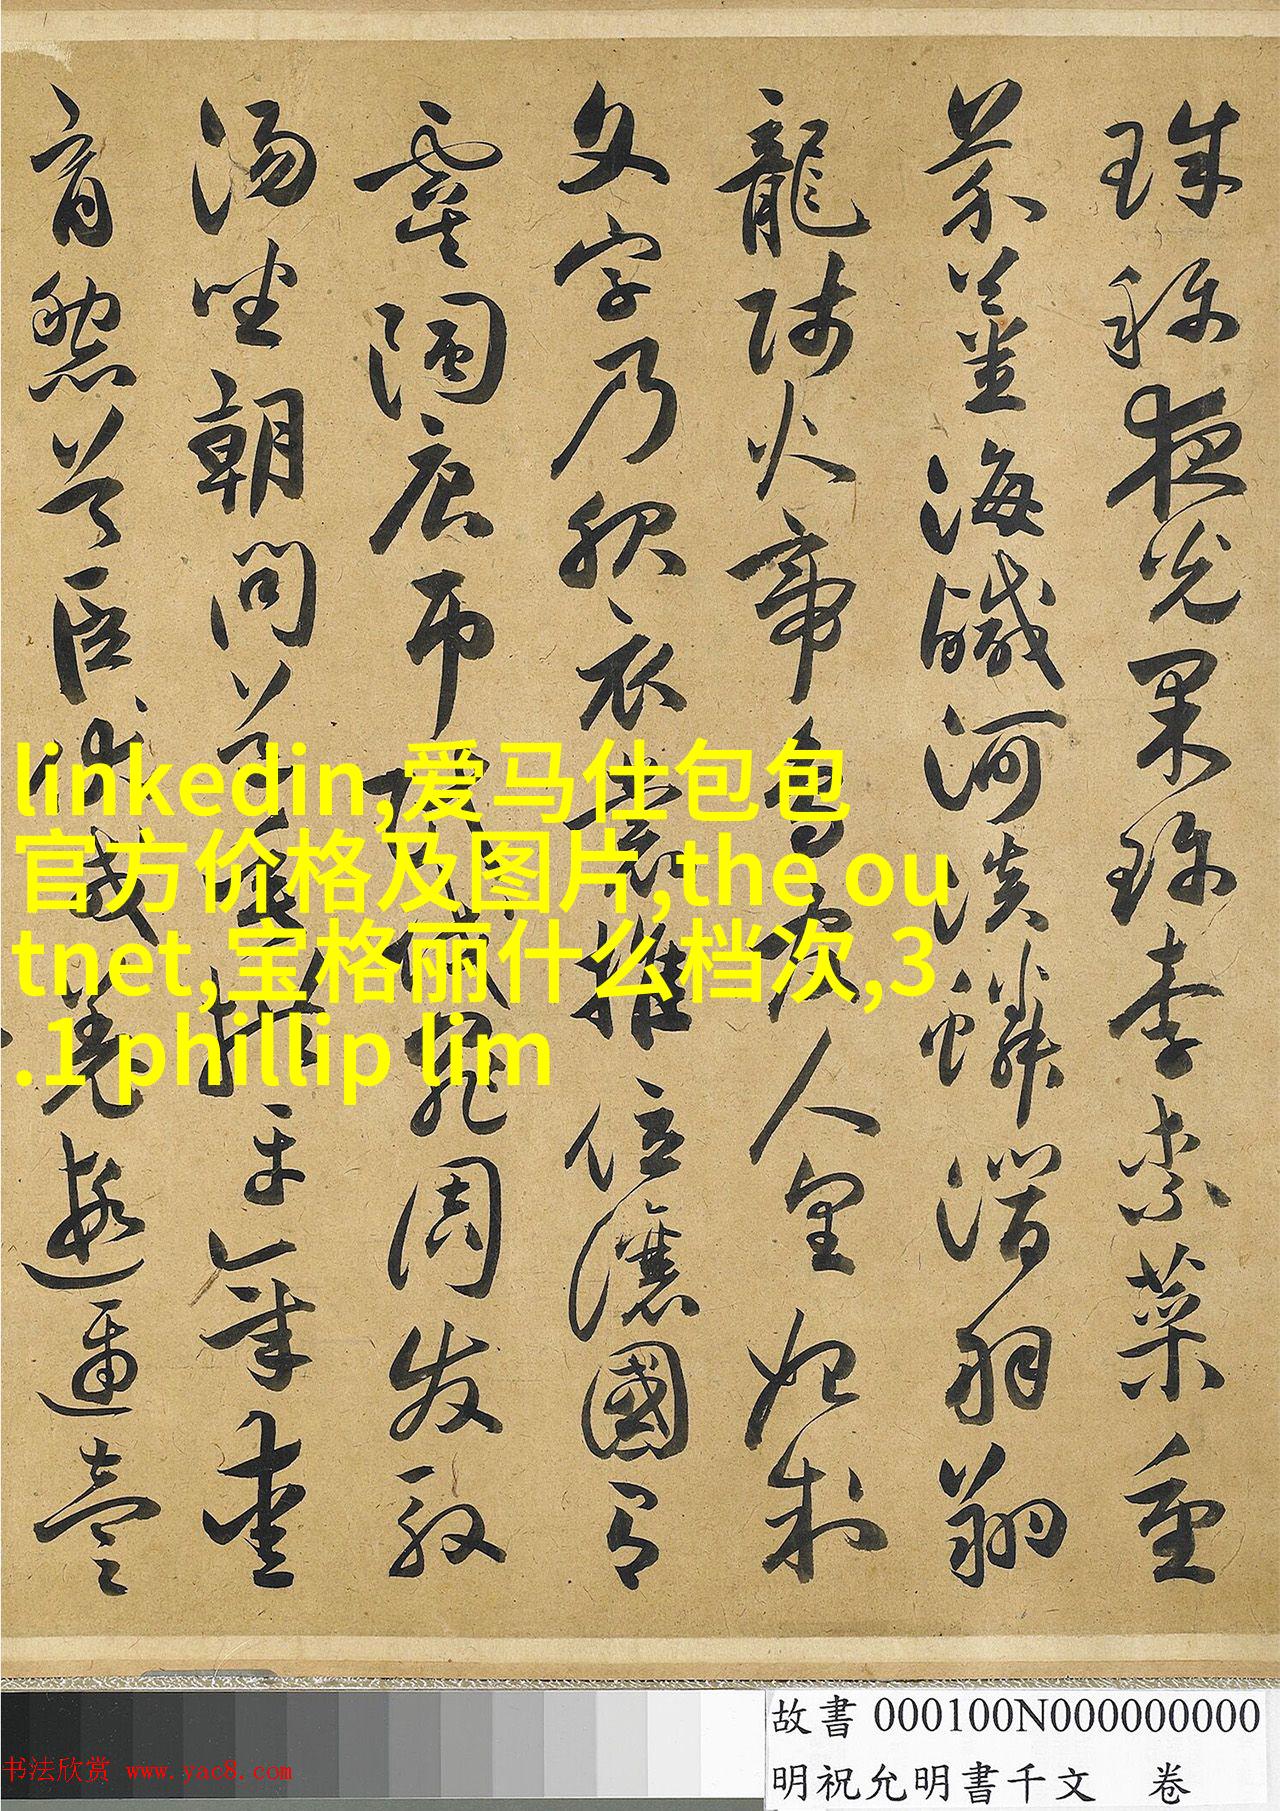 珠称夜光果珍李柰菜重
芥薑海鹹河淡鱗潛羽翔
龍師火帝鳥官人皇始制
文字乃服衣裳推位讓國有
虞陶唐弔民伐罪周发殷
湯坐朝問道垂拱平章愛
育黎首臣伏戎羌遐邇壹
linkedin,爱马仕包包
官方价格及图片,the ou
tnet,宝格丽什么档次,3
.1 phillip lim
故書 000100N000000000
明祝允明書千文 卷
书法欣赏 www.yac8.com